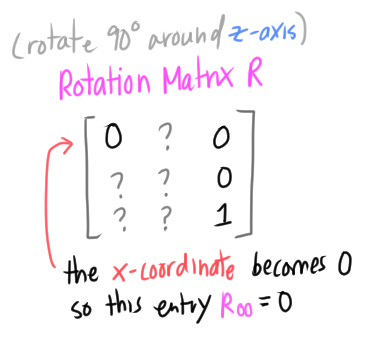 (rotate 90° around z-axis)
Rotation Matrix R
0 ? 0
? ? 0
? ? 1
the x-coordinate becomes 0
so this entry R₀₀ = 0